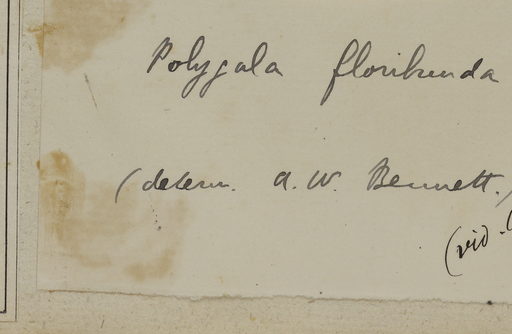 Polygala floribunda
(determ. A. W. Bennett.)
(vid.